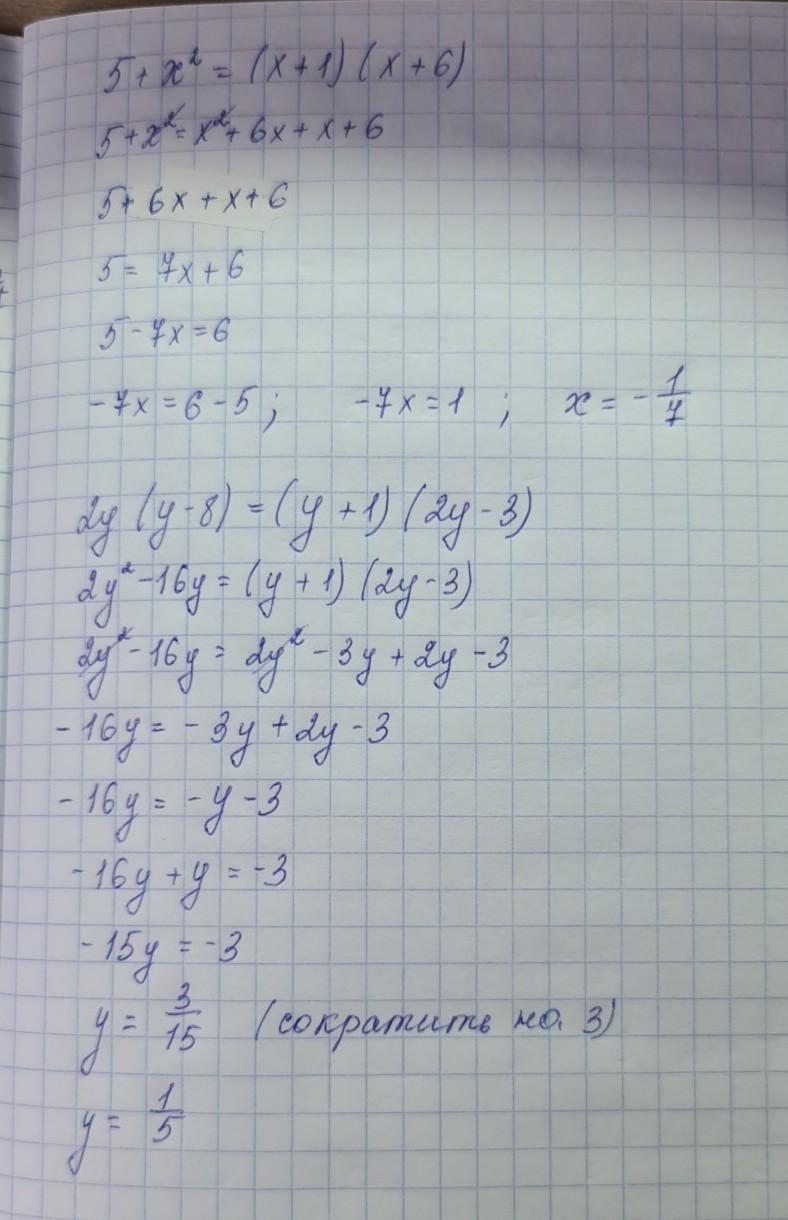 5 + x² = (x+1) (x+6)
5+x² = x² + 6x + x + 6
5+ 6x + x + 6
5 = 7x + 6
5 - 7x = 6
-7x = 6 - 5 ; -7x = 1 ; x = - 1/7
2y (y - 8) = (y + 1) (2y - 3)
2y² - 16y = (y + 1) (2y - 3)
2y² - 16y = 2y² - 3y + 2y - 3
- 16y = - 3y + 2y - 3
- 16y = - y - 3
- 16y + y = -3
- 15y = -3
y = 3/15 (сократить на 3)
y = 1/5